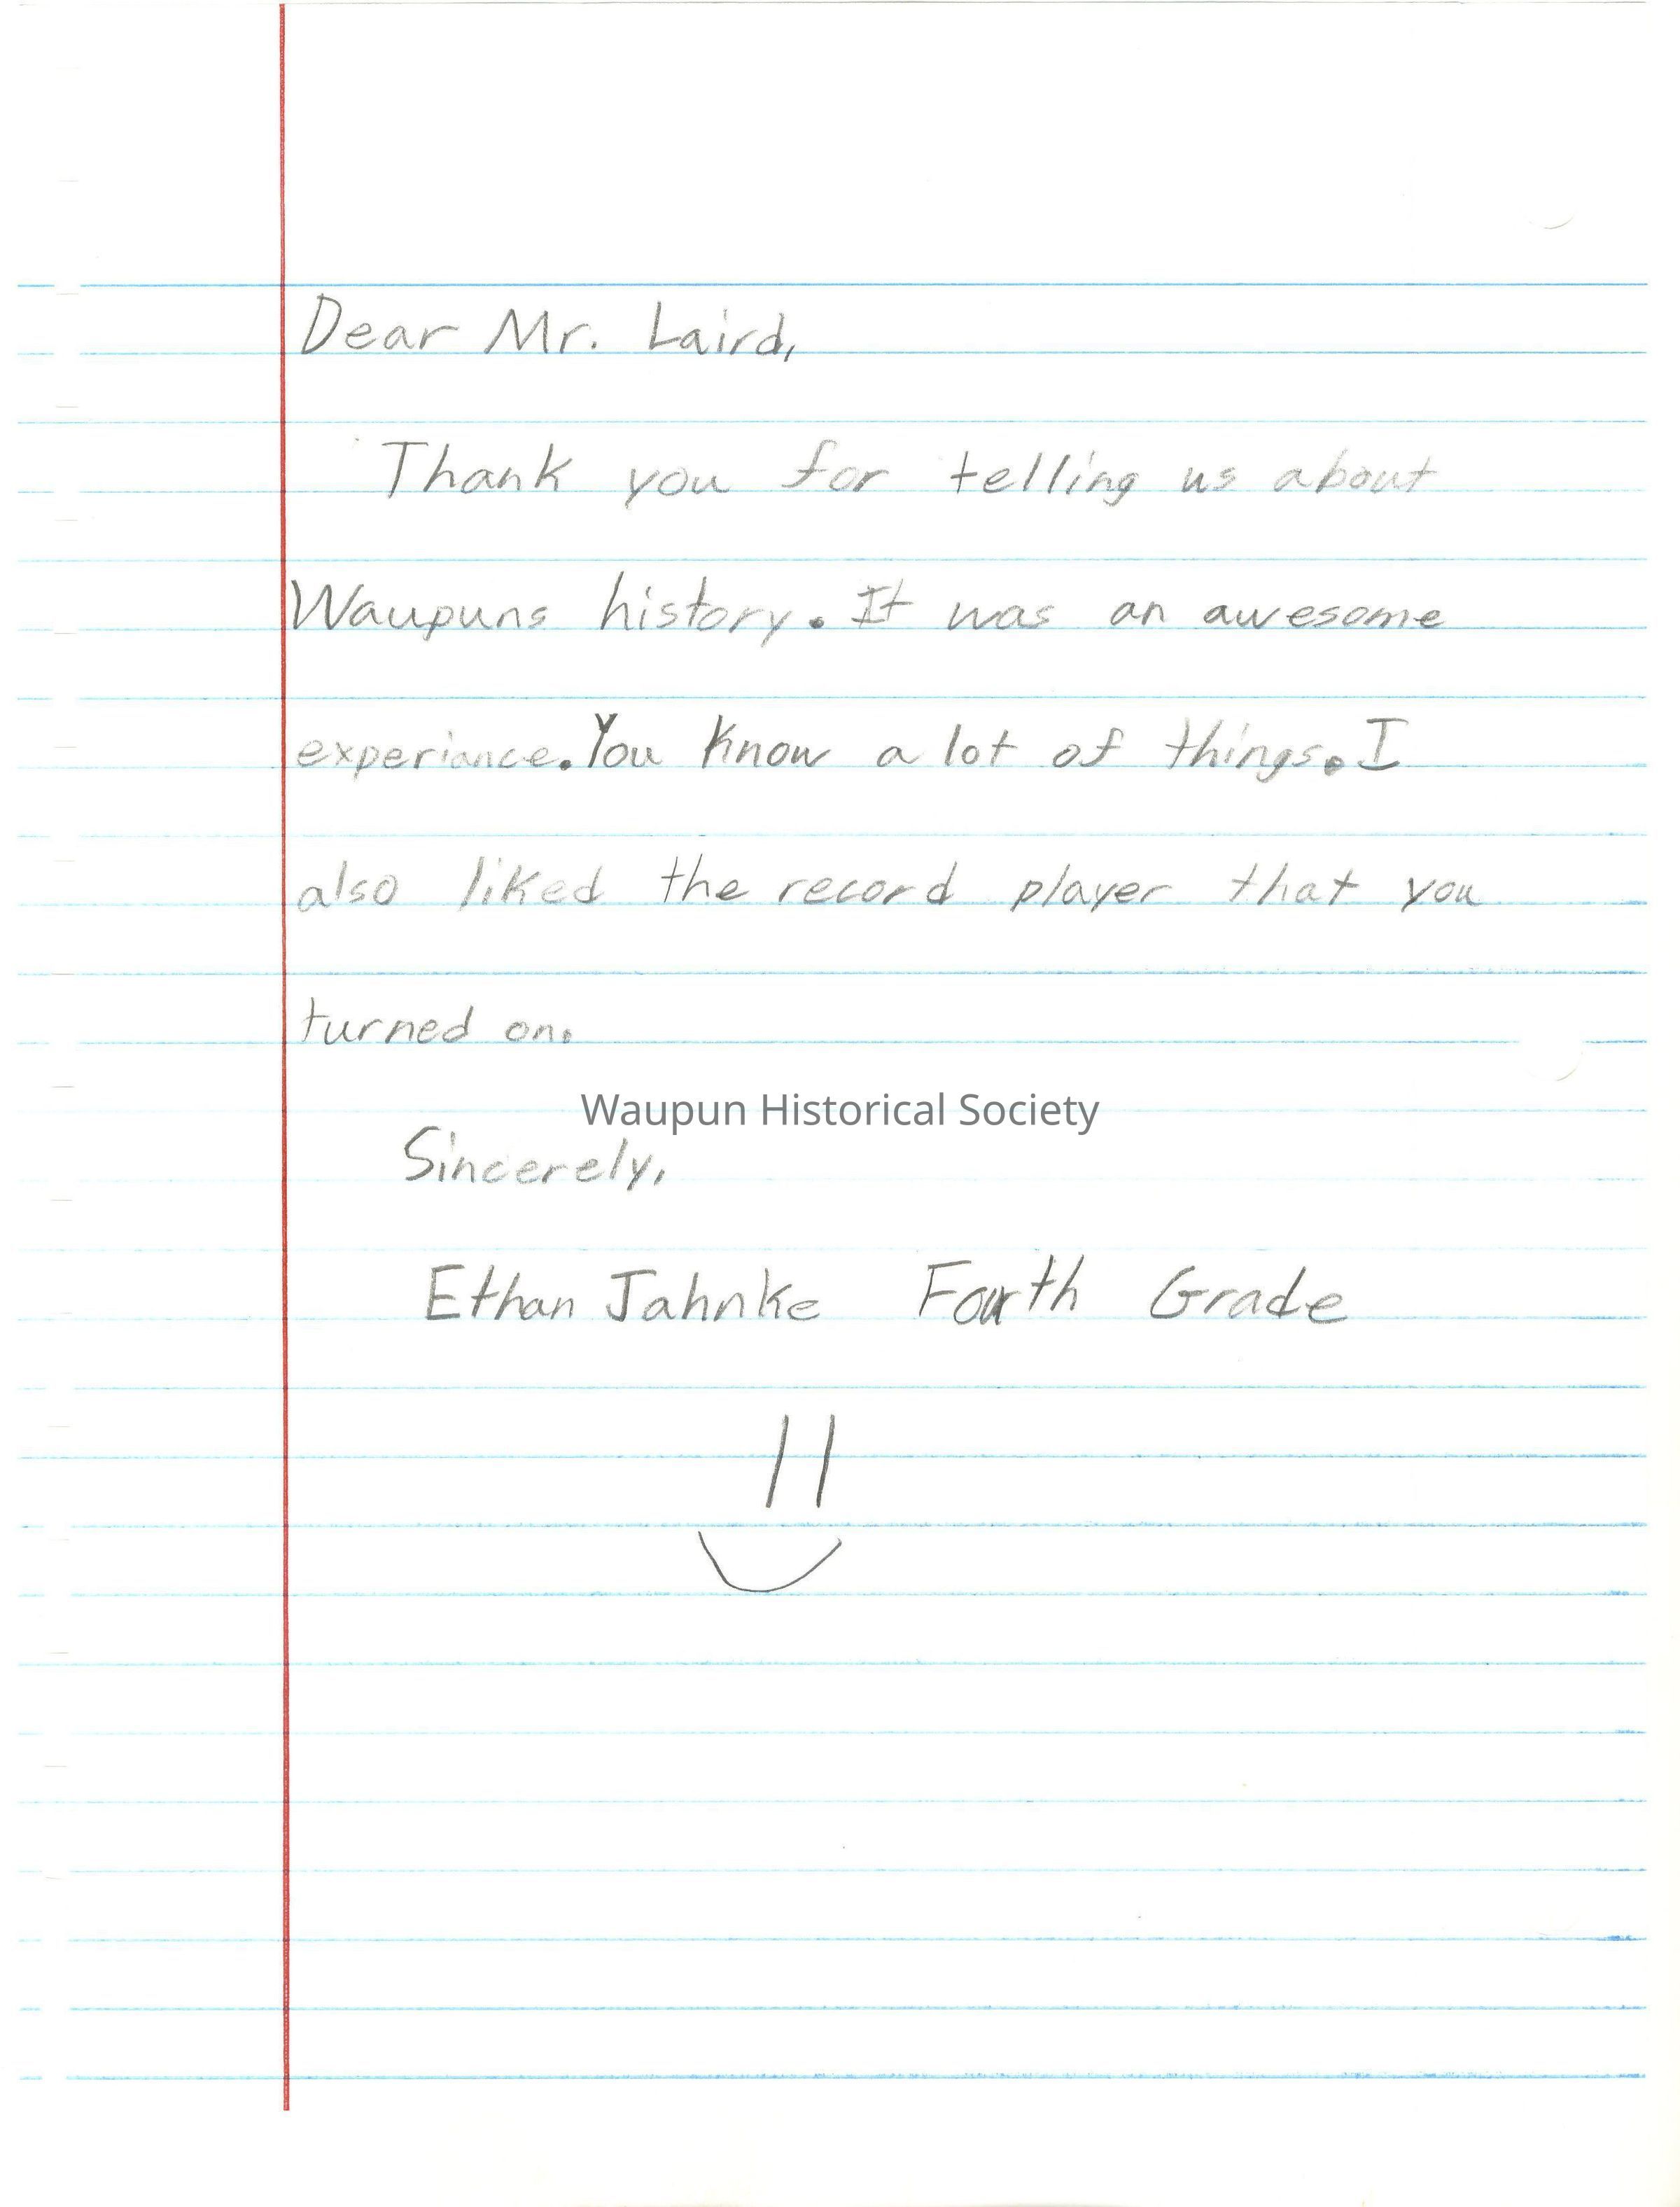 Dear Mr. Laird,
Thank you for telling us about
Waupuns history. It was an awesome
experiance. You know a lot of things. I
also liked the record player that you
turned on.
Waupun Historical Society
Sincerely,
Ethan Jahnke Fourth Grade